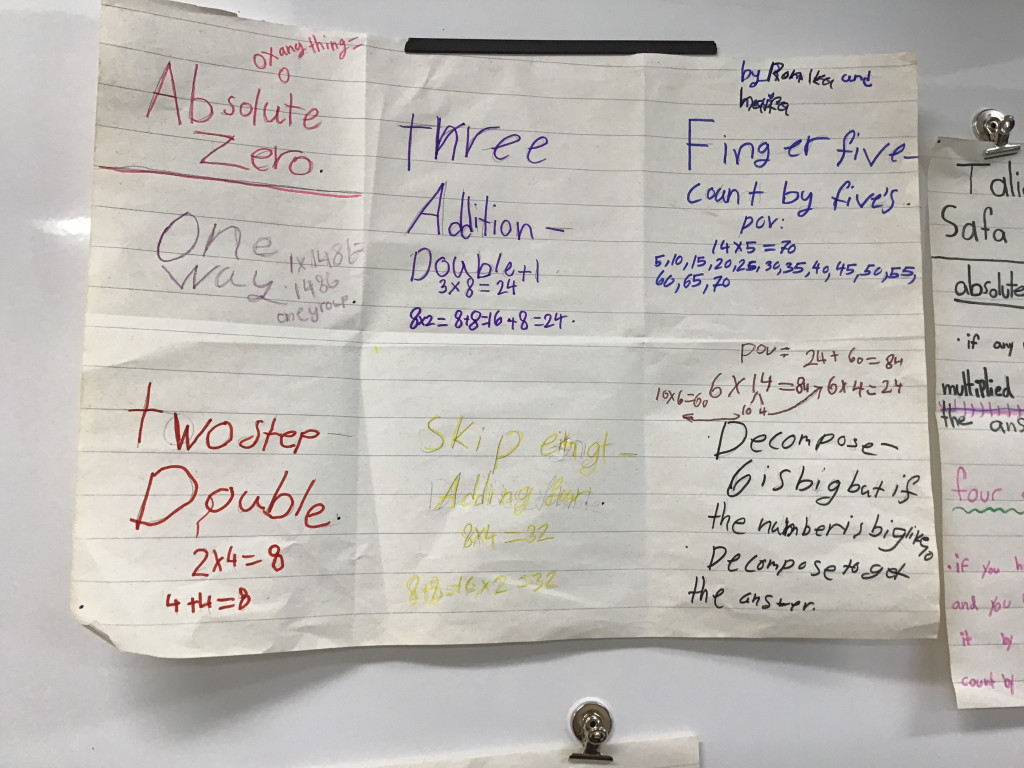 0x anything=
0
Absolute
Zero.
One
way.
1x1486=
1486
one group.
two step
Double.
2x4=8
4+4=8
three
Addition-
Double+1
3x8=24
8x2=8+8=16+8=24.
Skip
Adding
8x4=32
8+8=16x2=32
by and
Finger five-
count by five's.
pov:
14x5=70
5,10,15,20,25,30,35,40,45,50,55,
60,65,70
pov= 24+60=84
10x6=60 6x14=84 6x4=24
10 4
Decompose-
6 is big but if
the number is big like 70
Decompose to get
the answer.
Safa
absolute
• if any
multiplied
the ans
four
• if you h
and you
it by
count by